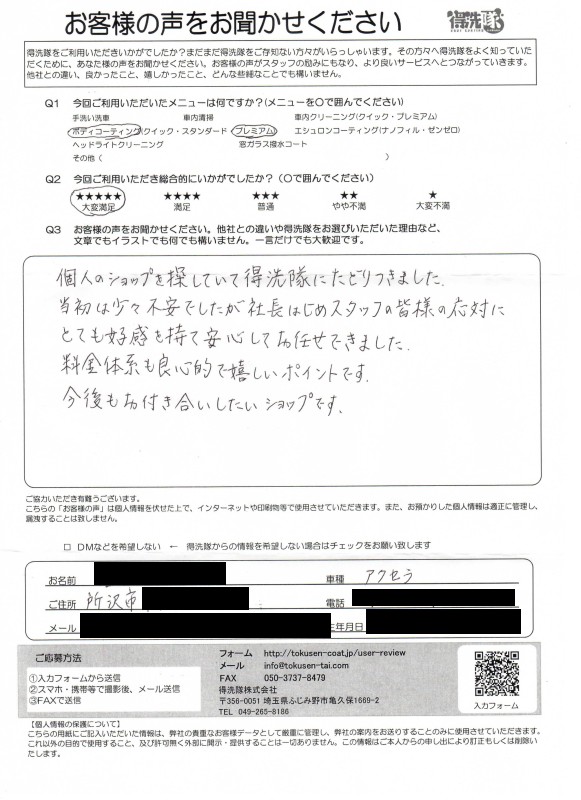 お客様の声をお聞かせください
得洗隊
得洗隊をご利用いただきいかがでしたか？まだまだ得洗隊をご存知ない方々がいらっしゃいます。その方々へ得洗隊をよく知っていた
だくために、あなた様の声をお聞かせください。お客様の声がスタッフの励みにもなり、より良いサービスへとつながっていきます。
他社との違い、良かったこと、嬉しかったこと、どんな些細なことでも構いません。
Q1 今回ご利用いただいたメニューは何ですか？(メニューを○で囲んでください)
手洗い洗車 車内清掃 車内クリーニング(クイック・プレミアム)
ボディコーティング(クイック・スタンダード・プレミアム) エシュロンコーティング(ナノフィル・ゼンゼロ)
ヘッドライトクリーニング 窓ガラス撥水コート
その他( )
Q2 今回ご利用いただき総合的にいかがでしたか？(○で囲んでください)
★★★★★ ★★★★ ★★★ ★★ ★
大変満足 満足 普通 やや不満 大変不満
Q3 お客様の声をお聞かせください。他社との違いや得洗隊をお選びいただいた理由など、
文章でもイラストでも何でも構いません。一言だけでも大歓迎です。
個人のショップを探していて得洗隊にたどりつきました.
当初は少々不安でしたが社長はじめスタッフの皆様の応対に
とても好感を持て安心してお任せできました.
料金体系も良心的で嬉しいポイントです.
今後もお付き合いしたいショップです、
ご協力いただき有難うございます。
こちらの「お客様の声」は個人情報を伏せた上で、インターネットや印刷物等で使用させていただきます。また、お預かりした個人情報は適正に管理し、
漏洩することは致しません。
□ DMなどを希望しない ← 得洗隊からの情報を希望しない場合はチェックをお願い致します
お名前 車種 アクセラ
ご住所 所沢市 電話
メール 年月日
ご応募方法
①入力フォームから送信
②スマホ・携帯等で撮影後、メール送信
③FAXで送信
フォーム http://tokusen-coat.jp/user-review
メール info@tokusen-tai.com
FAX 050-3737-8479
得洗隊株式会社
〒356-0051 埼玉県ふじみ野市亀久保1669-2
TEL 049-265-8186
入力フォーム
【個人情報の保護について】
こちらの用紙にご記入いただいた情報は、弊社の貴重なお客様データとして厳重に管理し、弊社の案内をお送りすることのみに使用させていただきます。
これ以外の目的で使用すること、及び許可無く外部に開示・提供することは一切ありません。この情報はご本人からの申し出により訂正もしくは削除い
たします。